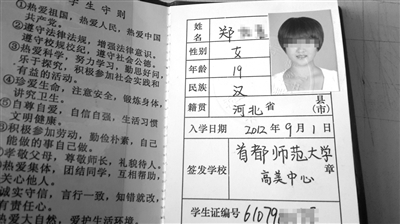 学生守则
①热爱祖国,热爱人民,热爱中国
共产党。
②遵守法律法规,增强法律意识。
遵守校规校纪,遵守社会公德。
③热爱科学,努力学习,勤思好问,
乐于探究,积极参加社会实践和
有益的活动。
④珍爱生命,注意安全,锻炼身体,
讲究卫生。
⑤自尊自爱,自信自强,生活习惯
文明健康。
积极参加劳动,勤俭朴素,自己
能做的事自己做。
孝敬父母,尊敬师长,礼貌待人。
热爱集体,团结同学,互相帮助,
关心他人。
诚实守信,言行一致,知错就改,
有责任心。
热爱大自然,爱护生活环境。
姓名 郑
性别 女
年龄 19
民族 汉
籍贯 河北 省 县(市)
入学日期 2012 年 9 月 1 日
签发学校 首都师范大学
高美中心 章
学生证编号 61079